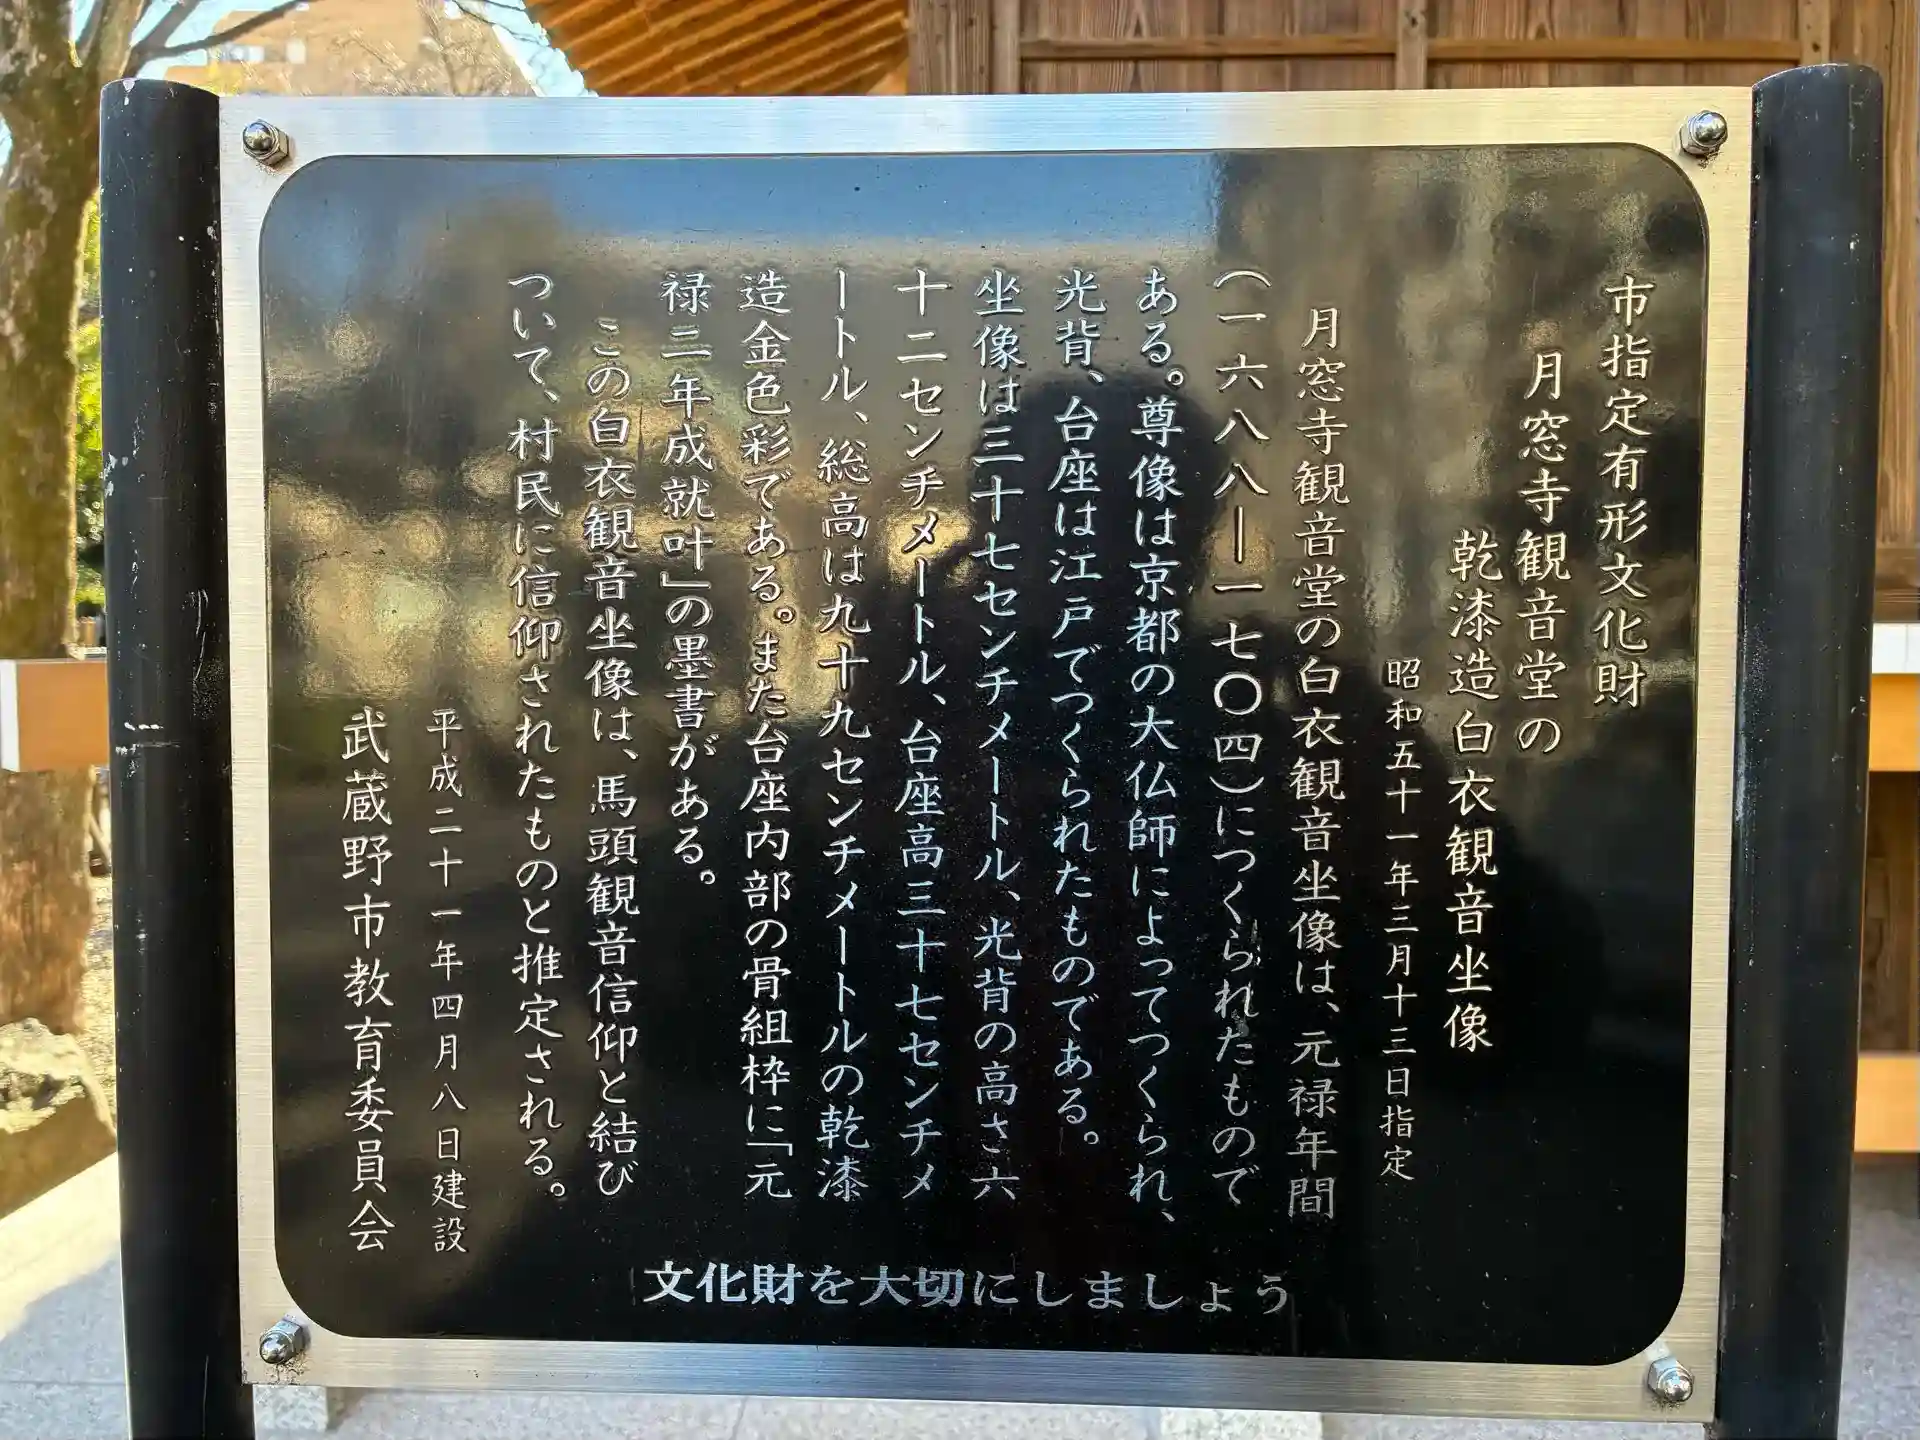 市指定有形文化財
月窓寺観音堂の
乾漆造白衣観音坐像
昭和五十一年三月十三日指定
月窓寺観音堂の白衣観音坐像は、元禄年間
(一六八八―一七〇四)につくられたもので
ある。尊像は京都の大仏師によってつくられ、
光背、台座は江戸でつくられたものである。
坐像は三十七センチメートル、光背の高さ六
十二センチメートル、台座高三十七センチメ
ートル、総高は九十九センチメートルの乾漆
造金色彩である。また台座内部の骨組枠に「元
禄二年成就叶」の墨書がある。
この白衣観音坐像は、馬頭観音信仰と結び
ついて、村民に信仰されたものと推定される。
平成二十一年四月八日建設
武蔵野市教育委員会
文化財を大切にしましょう